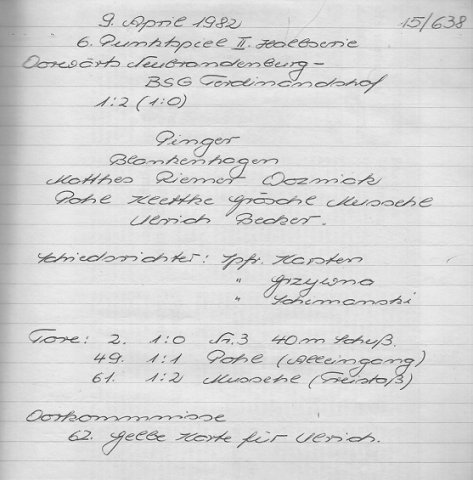 9. April 1982 15/638
6. Punktspiel II. Halbserie
Vorwärts Neubrandenburg -
BSG Ferdinandshof
1:2 (1:0)
Pinger
Blankenhagen
Matthes Riemer Woznick
Pohl Kletthe Gräsche Mussehl
Ulrich Becker.
Schiedsrichter: Spfr. Karsten
" Grzywna
" Schimanski
Tore: 2. 1:0 Nr.3 40m Schuß.
49. 1:1 Pohl (Alleingang)
61. 1:2 Mussehl (Freistoß)
Vorkommnisse
62. gelbe Karte für Ulrich.